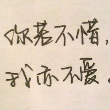 你若不惜，
我亦不爱。